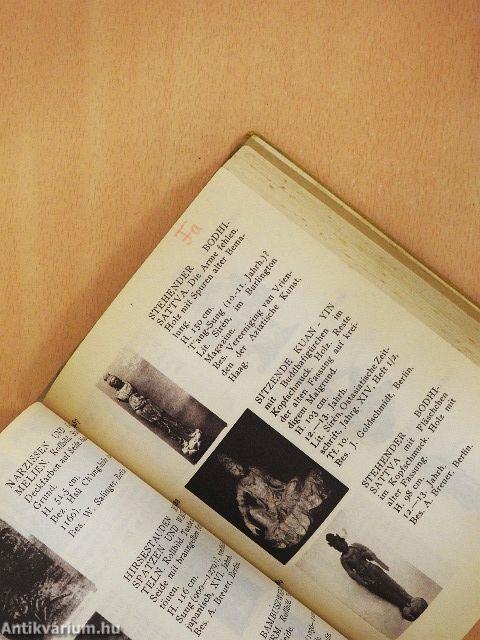 NARZISSEN UND
MELIEN. Rollbild.
Deckfarben auf Seide.
Grund.
H. 51.5 cm.
1669).
Bes. W. Salinger, Berlin
HIRSESTAUDEN
SPATZEN UND
TELN. Rollbild.
Seide mit braungelben
tönen.
H. 116 cm.
Sung (960–1279),
japanisch, XVI. Jahrh.
Bes. A. Breuer, Berlin
Fa
STEHENDER BODHI-
SATTVA. Die Arme fehlen.
Holz mit Spuren alter Bema-
lung.
H. 150 cm.
T'ang-Sung (10.-11. Jahrh.)?
Lit. Sirén, im Burlington
Magazine.
Bes. Vereeniging van Vrien-
den der Aziatische Kunst,
Haag.
SITZENDE KUAN-YIN
mit Buddhafigürchen im
Kopfschmuck. Holz. Reste
der alten Fassung auf krei-
digem Malgrund.
H. 103 cm.
12.—13. Jahrh.
Lit. Sirén Ostasiatische Zeit-
schrift, Jahrg. XIV, Heft 1/2,
Tf. 10.
Bes. J. Goldschmidt, Berlin.
STEHENDER BODHI-
SATTVA mit Fläschchen
im Kopfschmuck. Holz mit
alter Fassung.
H. 98 cm.
12.—13. Jahrh.
Bes. A. Breuer, Berlin.
Antikvarium.hu